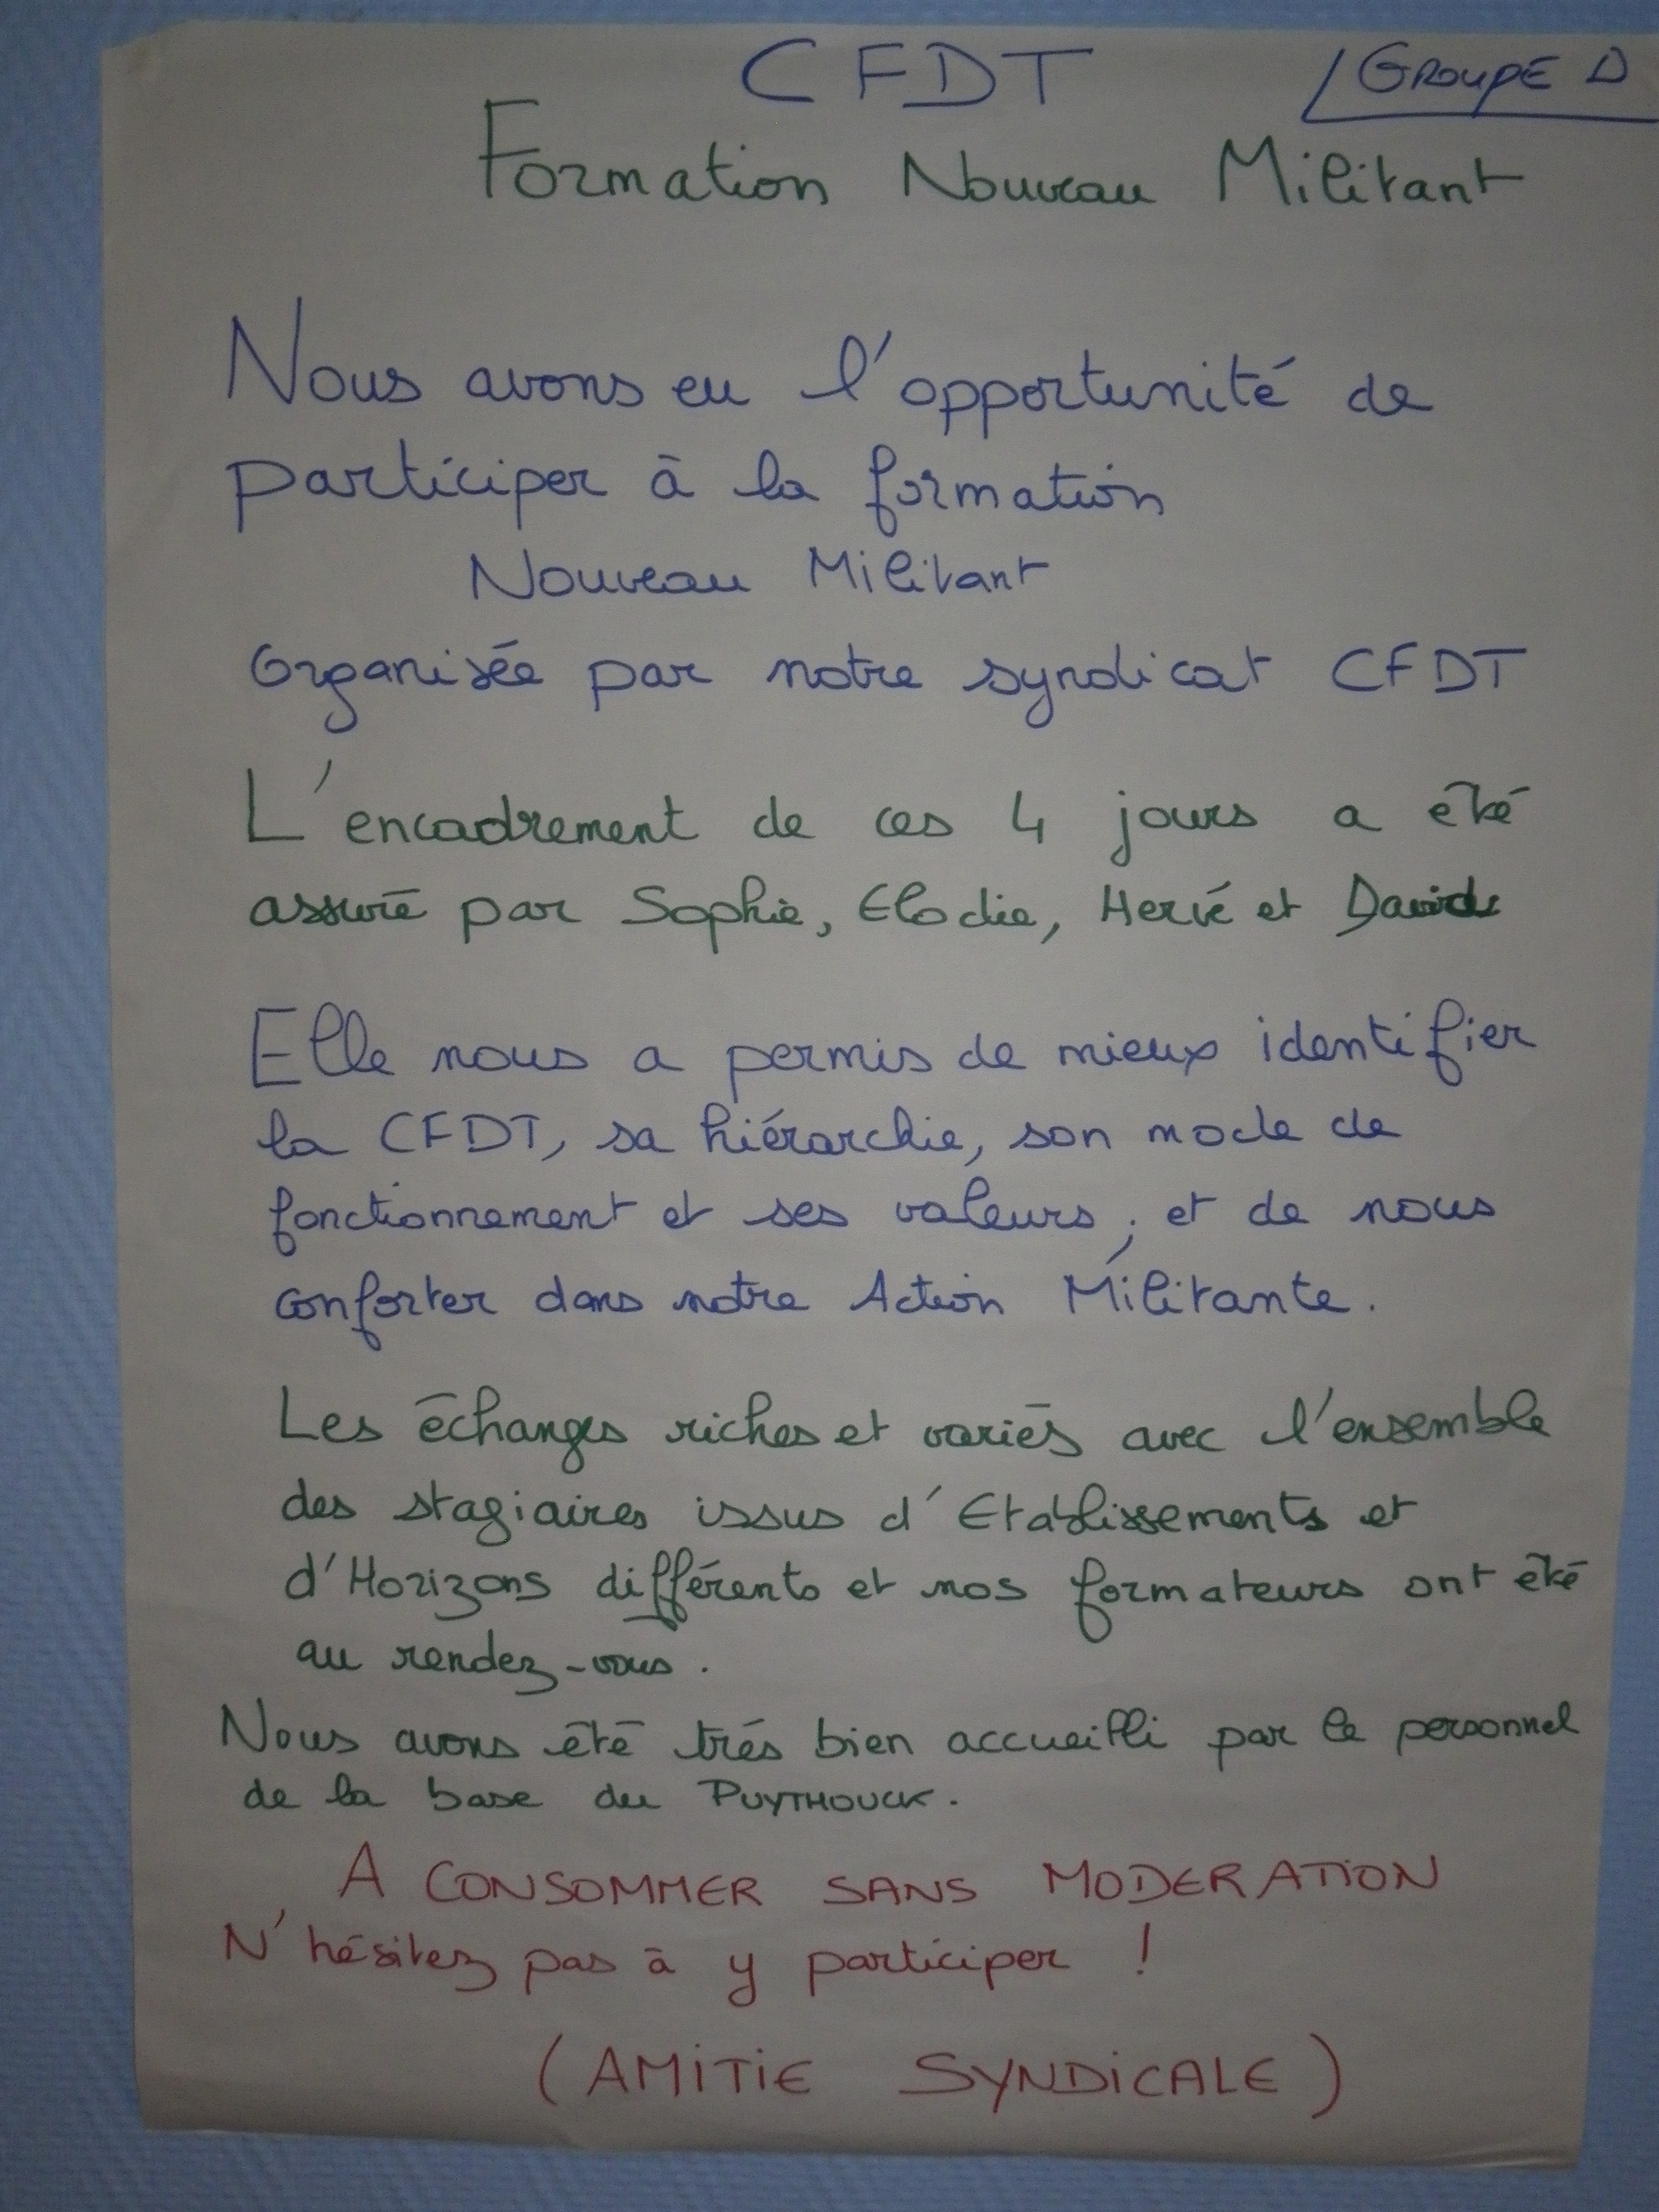 CFDT
GROUPE D
Formation Nouveau Militant
Nous avons eu l'opportunité de
participer à la formation
Nouveau Militant
Organisée par notre syndicat CFDT
L'encadrement de ces 4 jours a été
assuré par Sophie, Elodie, Hervé et David
Elle nous a permis de mieux identifier
la CFDT, sa hiérarchie, son mode de
fonctionnement et ses valeurs ; et de nous
conforter dans notre Action Militante.
Les échanges riches et variés avec l'ensemble
des stagiaires issus d'Etablissements et
d'Horizons différents et nos formateurs ont été
au rendez-vous.
Nous avons été trés bien accueilli par le personnel
de la base du PUYTHOUCK.
A CONSOMMER SANS MODERATION
N'hésitez pas à y participer !
(AMITIE SYNDICALE)